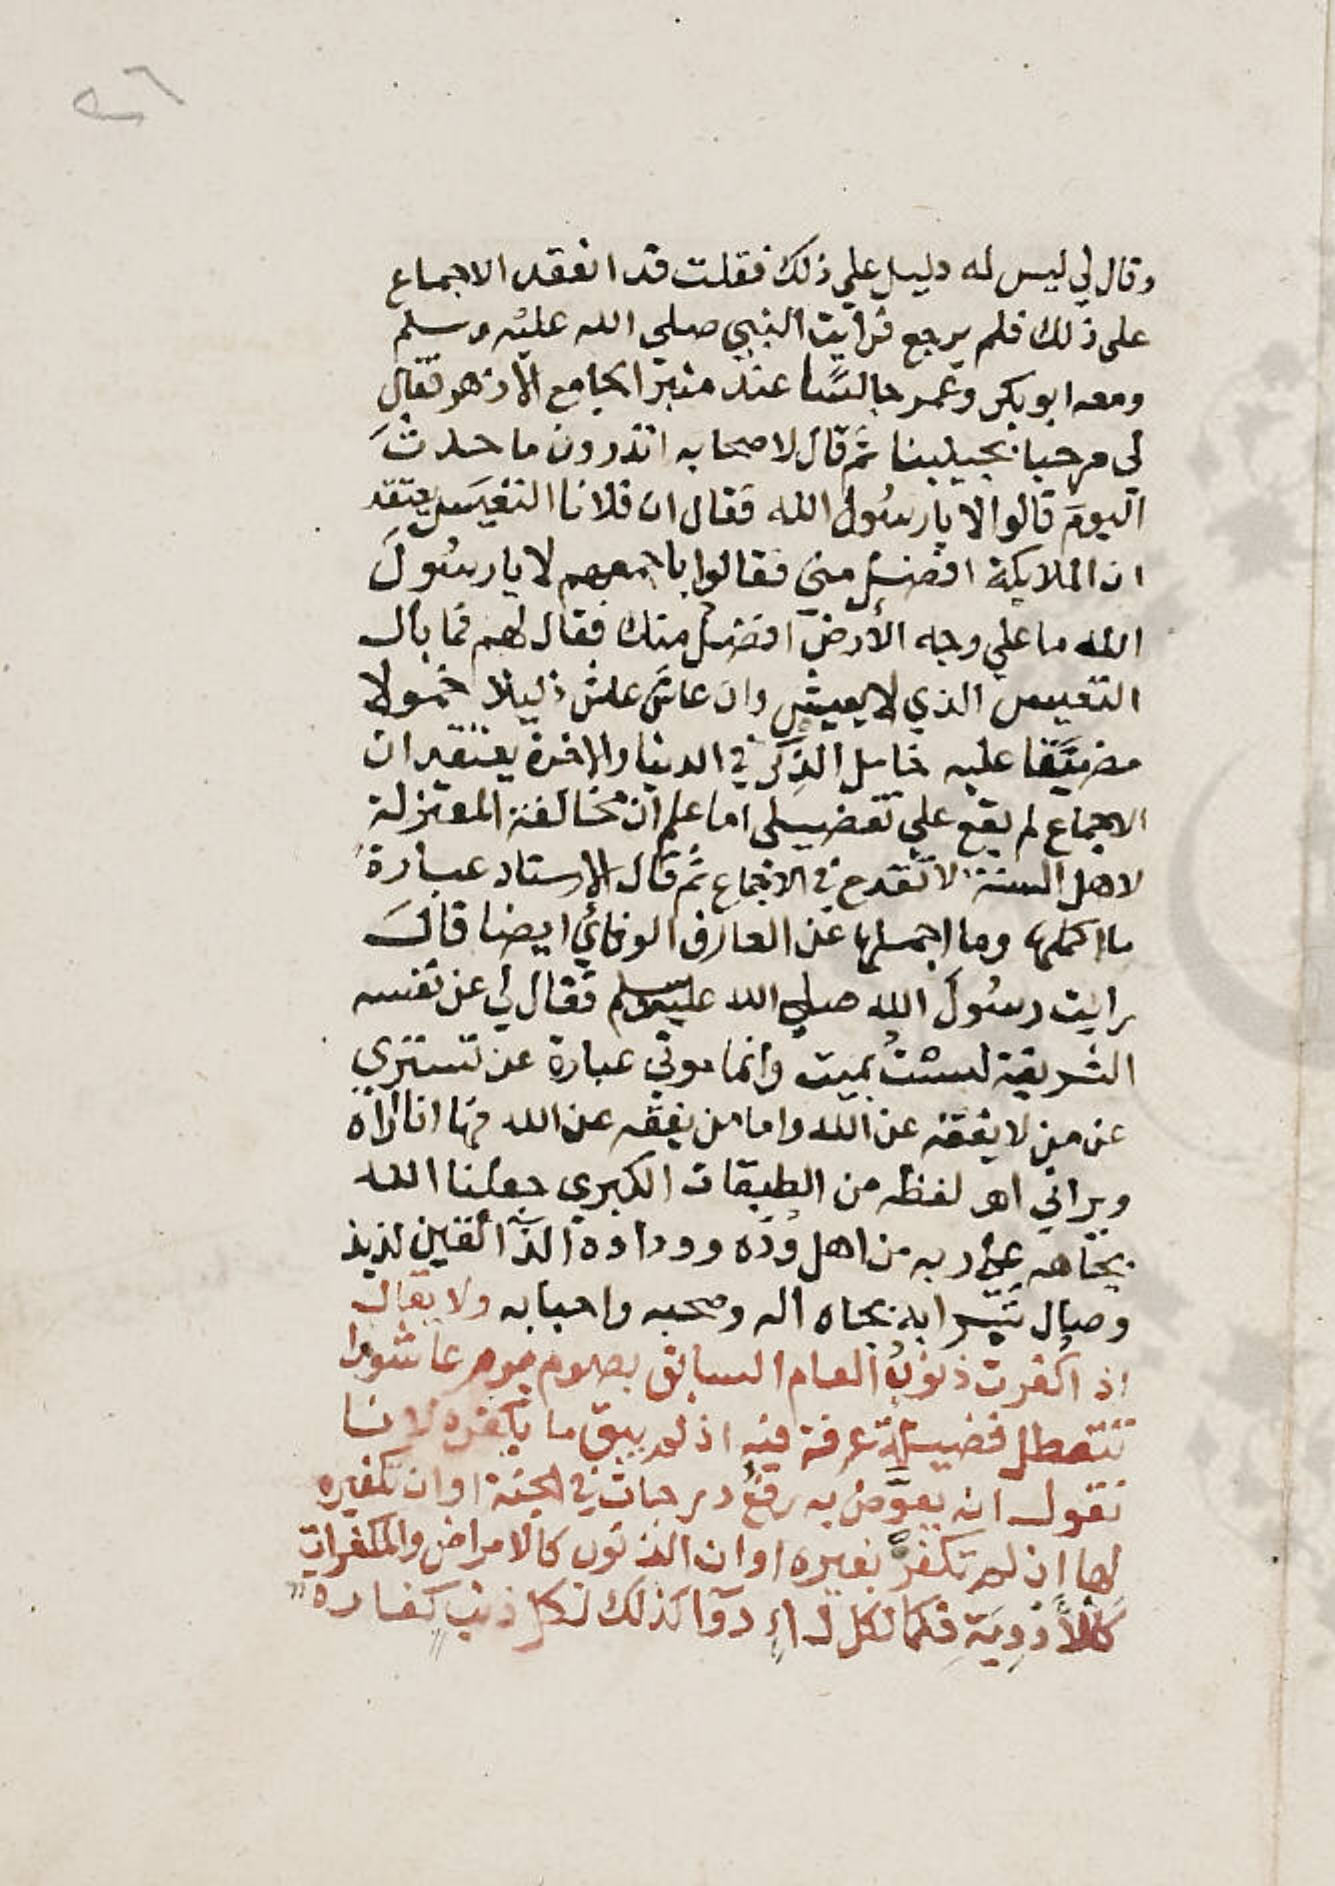 ٢٦
وقال لي ليس له دليل علي ذلك فقلت قد انعقد الاجماع
على ذلك فلم يرجع فرأيت النبي صلى الله عليه وسلم
ومعه ابو بكر وعمر جالسًا عند منبر الجامع الأزهر فقال
لي مرحبا بحبيبنا ثم قال لاصحابه اتدرون ما حدث
اليوم قالوا لا يا رسُول الله فقال ان فلانا التعيس يعتقد
ان الملايكة افضل مني فقالوا باجمعهم لا يا رسُول
الله ما علي وجه الأرض افضل منك فقال لهم فما بال
التعيس الذي لا يعيش وان عاش عاش ذليلا خمولا
مضيّقا عليه خامل الذكر في الدنيا والاخرة يعتقد ان
الاجماع لم يقع علي تفضيلي اما علم ان مخالفة المعتزلة
لاهل السنة لا تقدح في الاجماع ثم قال الاستاد عبارة
ما اكملها وما اجملها عن العارف الوفائي ايضا قال
رايت رسُول الله صلي الله عليه وسلم فقال لي عن نفسه
الشريفة لستُ بميت وانما موتي عبارة عن تستري
عن من لا يفقه عن الله واما من يفقه عن الله فها انا اراه
ويراني اهـ لفظه من الطبقات الكبري جعلنا الله
بجاهه علي ربه من اهل وُدّه ووداده الذّائقين لذيذ
وصال شرابه بجاه اله وصحبه واحبابه ولا يقال
اذا كفرت ذنوبُ العام السابق بصوم يوم عاشورا
تتعطل فضيلة عرفة فيه اذ لم يبق ما يكفره لانا
نقول انه يعوّض به رفع درجات في الجنة او ان تكفيره
لها ان لم تكفّر بغيره او ان الذنوب كالامراض والمكفرات
كالأدوية فكما لكل داء دوا كذلك لكل ذنب كفارة